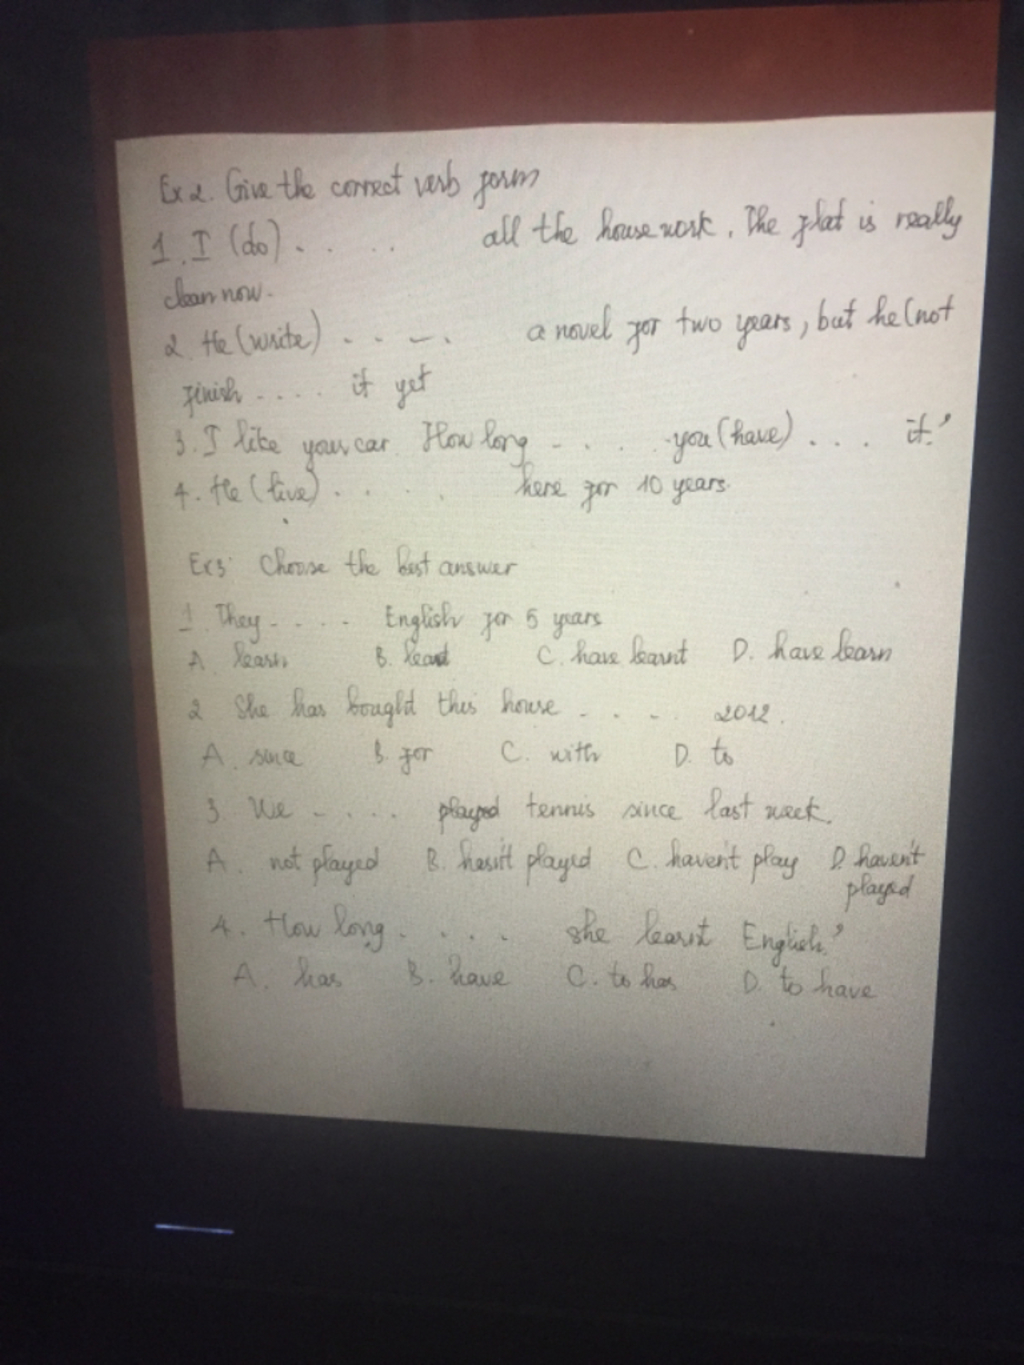 Ex 2. Give the correct verb form
1. I (do) . . . . . all the housework. The flat is really
clean now.
2. He (write) . . . . . a novel for two years, but he (not
finish .... it yet
3. I like your car. How long . . . . you (have) . . . . it?
4. He (live) . . . . . here for 10 years.
Ex3: Choose the best answer
1. They . . . . . English for 5 years
A. learn B. C. have learnt D. have learn
2. She has bought this house . . . . 2012.
A. since B. for C. with D. to
3. We . . . . . tennis since last week.
A. not played B. hasn't played C. haven't play D. haven't
played
4. How long . . . . . she learnt English?
A. has B. have C. to has D. to have